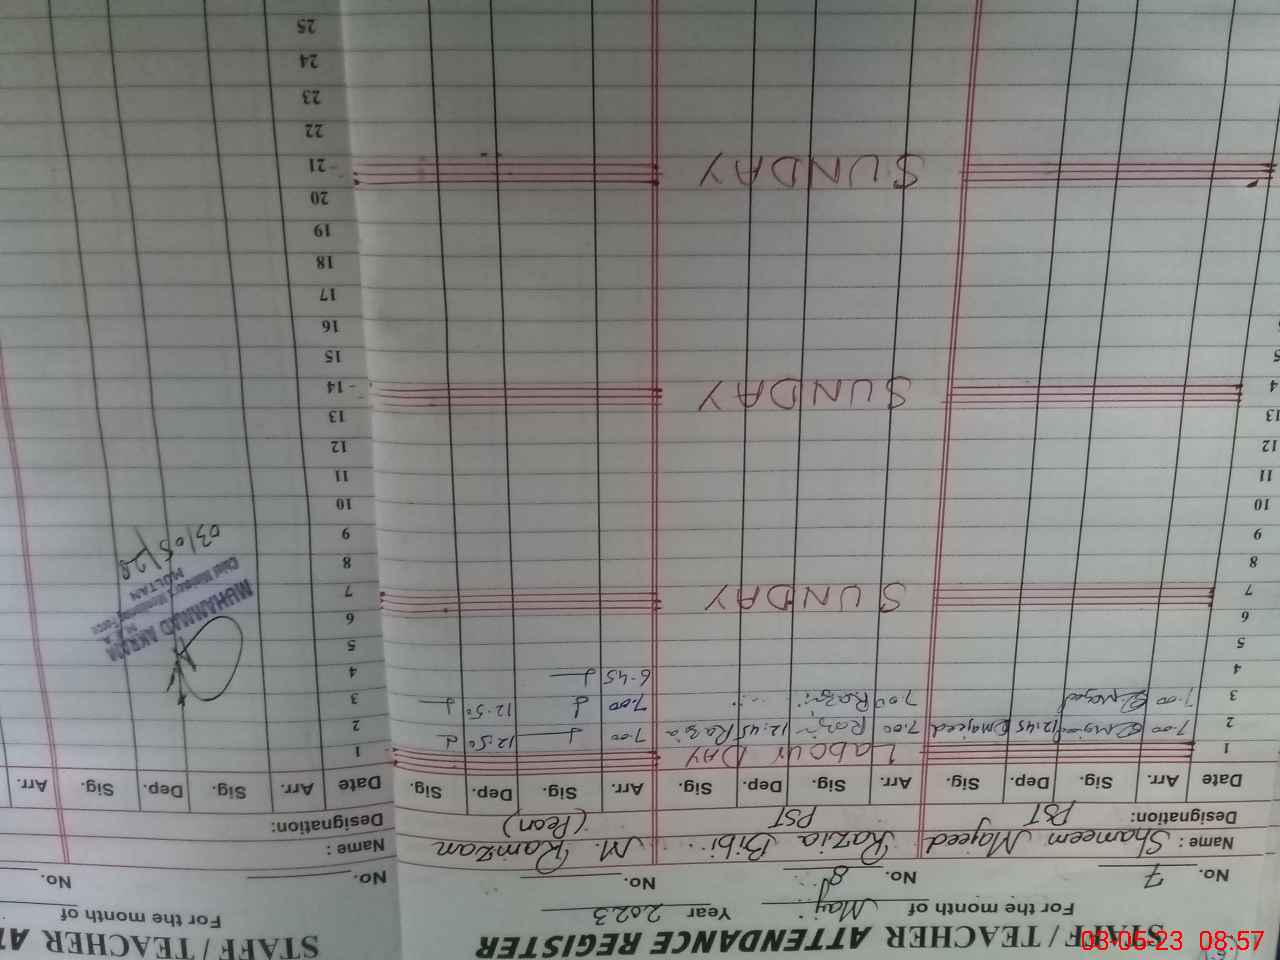 STAFF / TEACHER ATTENDANCE REGISTER
For the month of May Year 2023
No. 7 No. 8 No.
Name : Shameem Majeed Razia Bibi M. Ramzan
Designation: PST PST (Peon)
Date Arr. Sig. Dep. Sig. Arr. Sig. Dep. Sig. Arr. Sig. Dep. Sig.
1 Labour DAY
2 7.00 12:45 Majeed 7.00 12:45 Razia 7.00 12:50
3 7.00 7.00 7.00 12:50
4 6.45
5
6
7 SUNDAY
8
9
10
11
12
13
14 SUNDAY
15
16
17
18
19
20
21 SUNDAY
22
23
24
25
STAFF / TEACHER AT
For the month of
No. No.
Name :
Designation:
Date Arr. Sig. Dep. Sig. Arr.
1
2
3
4
5
6
7
8
9
10
11
12
13
14
15
16
17
18
19
20
21
22
23
24
25
MUHAMMAD AKRAM
MULTAN
03/05/20
03-05-23 08:57